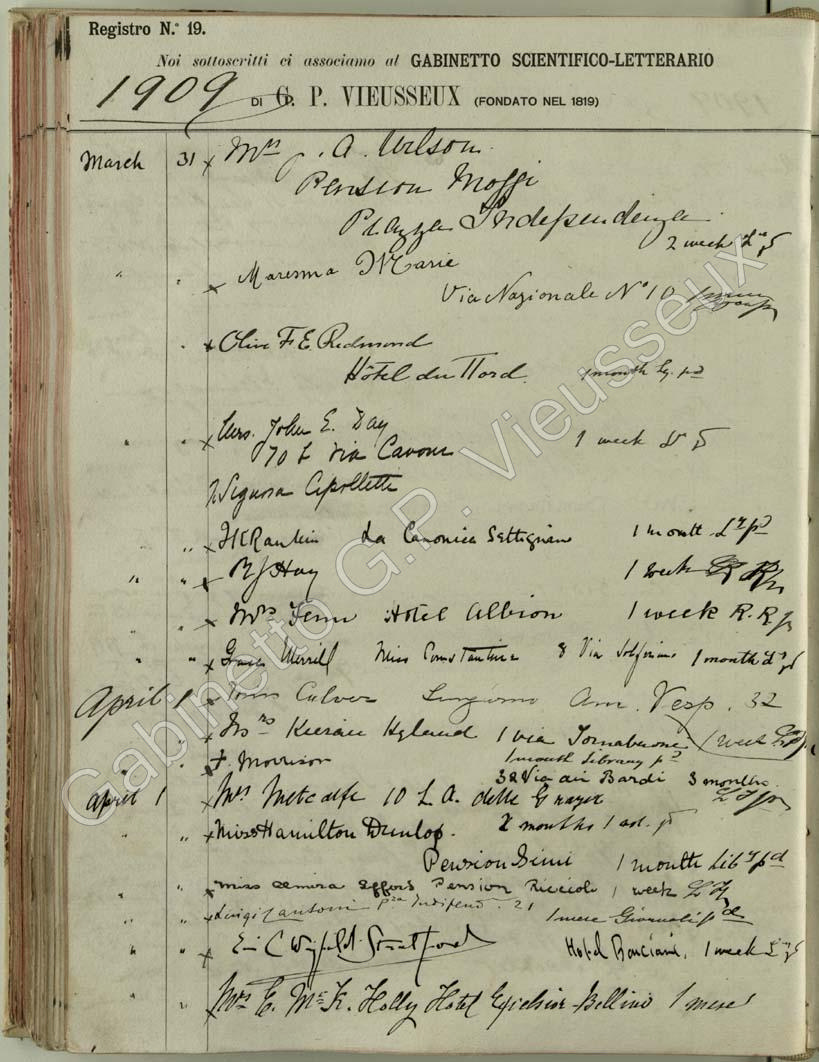 Registro N.° 19.
Noi sottoscritti ci associamo al GABINETTO SCIENTIFICO-LETTERARIO
1909 DI G. P. VIEUSSEUX (FONDATO NEL 1819)
March 31 x Mrs . A. Wilson
Pension Moggi
Piazza Independenza
2 week
" " x Maresma Marie
Via Nazionale N° 10
" x Olive F. E. Redmond
Hôtel du Nord. 1 month
" " x Mrs. John E. Day
70 Via Cavour 1 week
Signora Cipolletti
" x Rankin La Canonica Settignano 1 month
" " x Hay 1 week
" x Mrs Fenn Hotel Albion 1 week R. R
" " x Merrill Miss Constantine 8 Via Solferino 1 month
April 1 x Culver Lungarno Am. Vesp. 32
" x Mrs Hyland 1 via Tornabuoni 1 week
" x F. Morrison 1 month library pd
32 Via dei Bardi 3 months
April 1 x Mrs Metcalfe 10 L. A. delle Grazie
" " x Miss Hamilton Dunlop. 2 months 1 vol.
Pension Simi 1 month Liby pd
" " x Miss Pension Riccioli 1 week
" " x Luigi Zantoni Pza Indipend. 21 1 mese Giornali pd
" " x Eric C Wingfield-Stratford Hotel Bonciani, 1 week
" " x Mrs E. McK. Holly Hotel Bellini 1 mese
Gabinetto G.P. Vieusseux